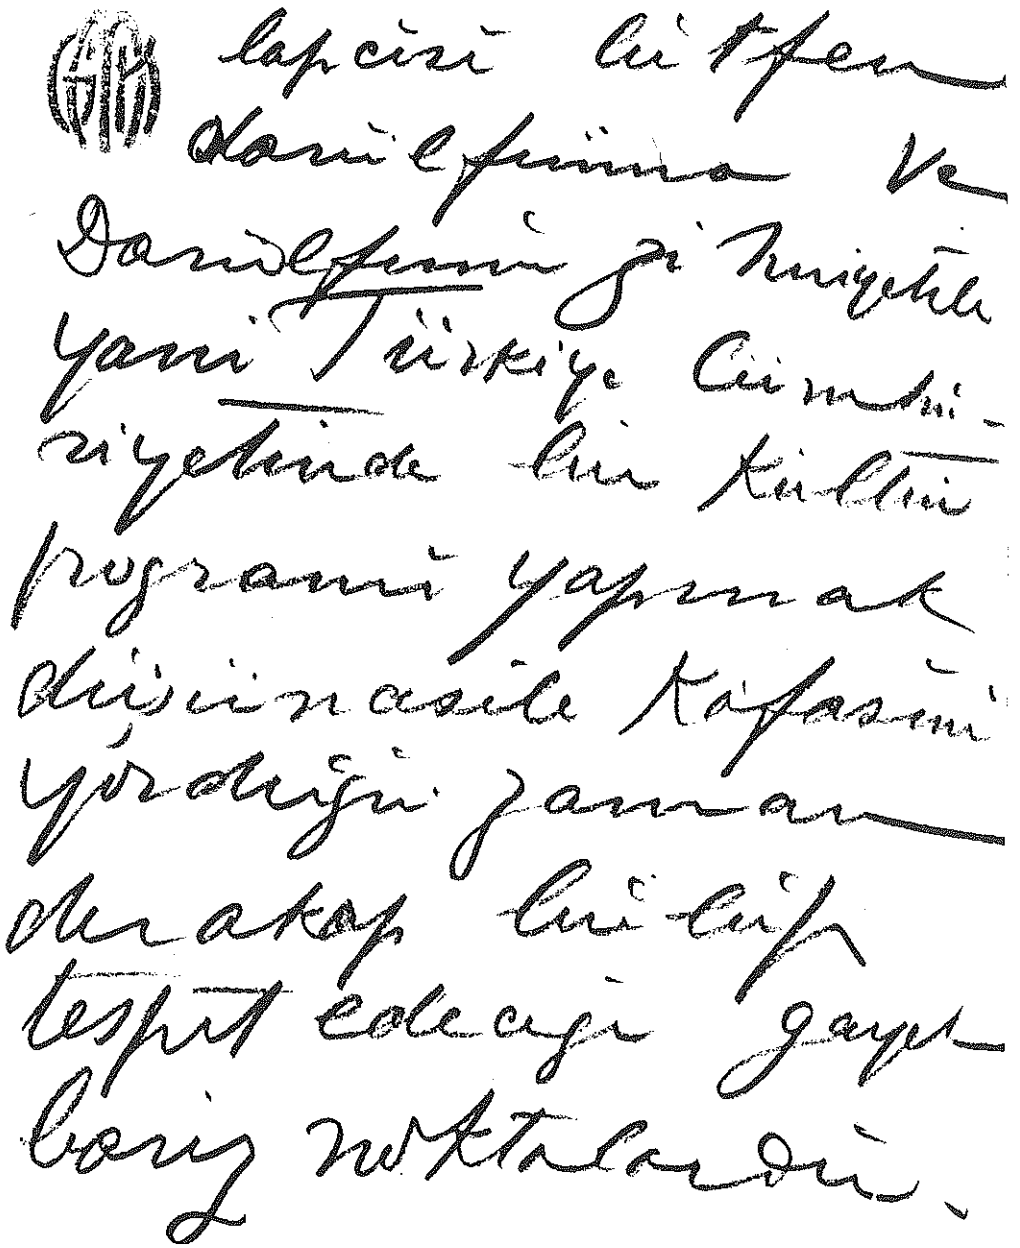 lapcısı lütfen
darülfünuna ve
Darülfünun gi huviyetile
yani Türkiye Cümhu-
riyetinde bir Kültür
programı yapmak
düşüncasile Kafasını
yorduğu zaman
der akap bulup
tespit edecegi gayet
bariz noktalardır.